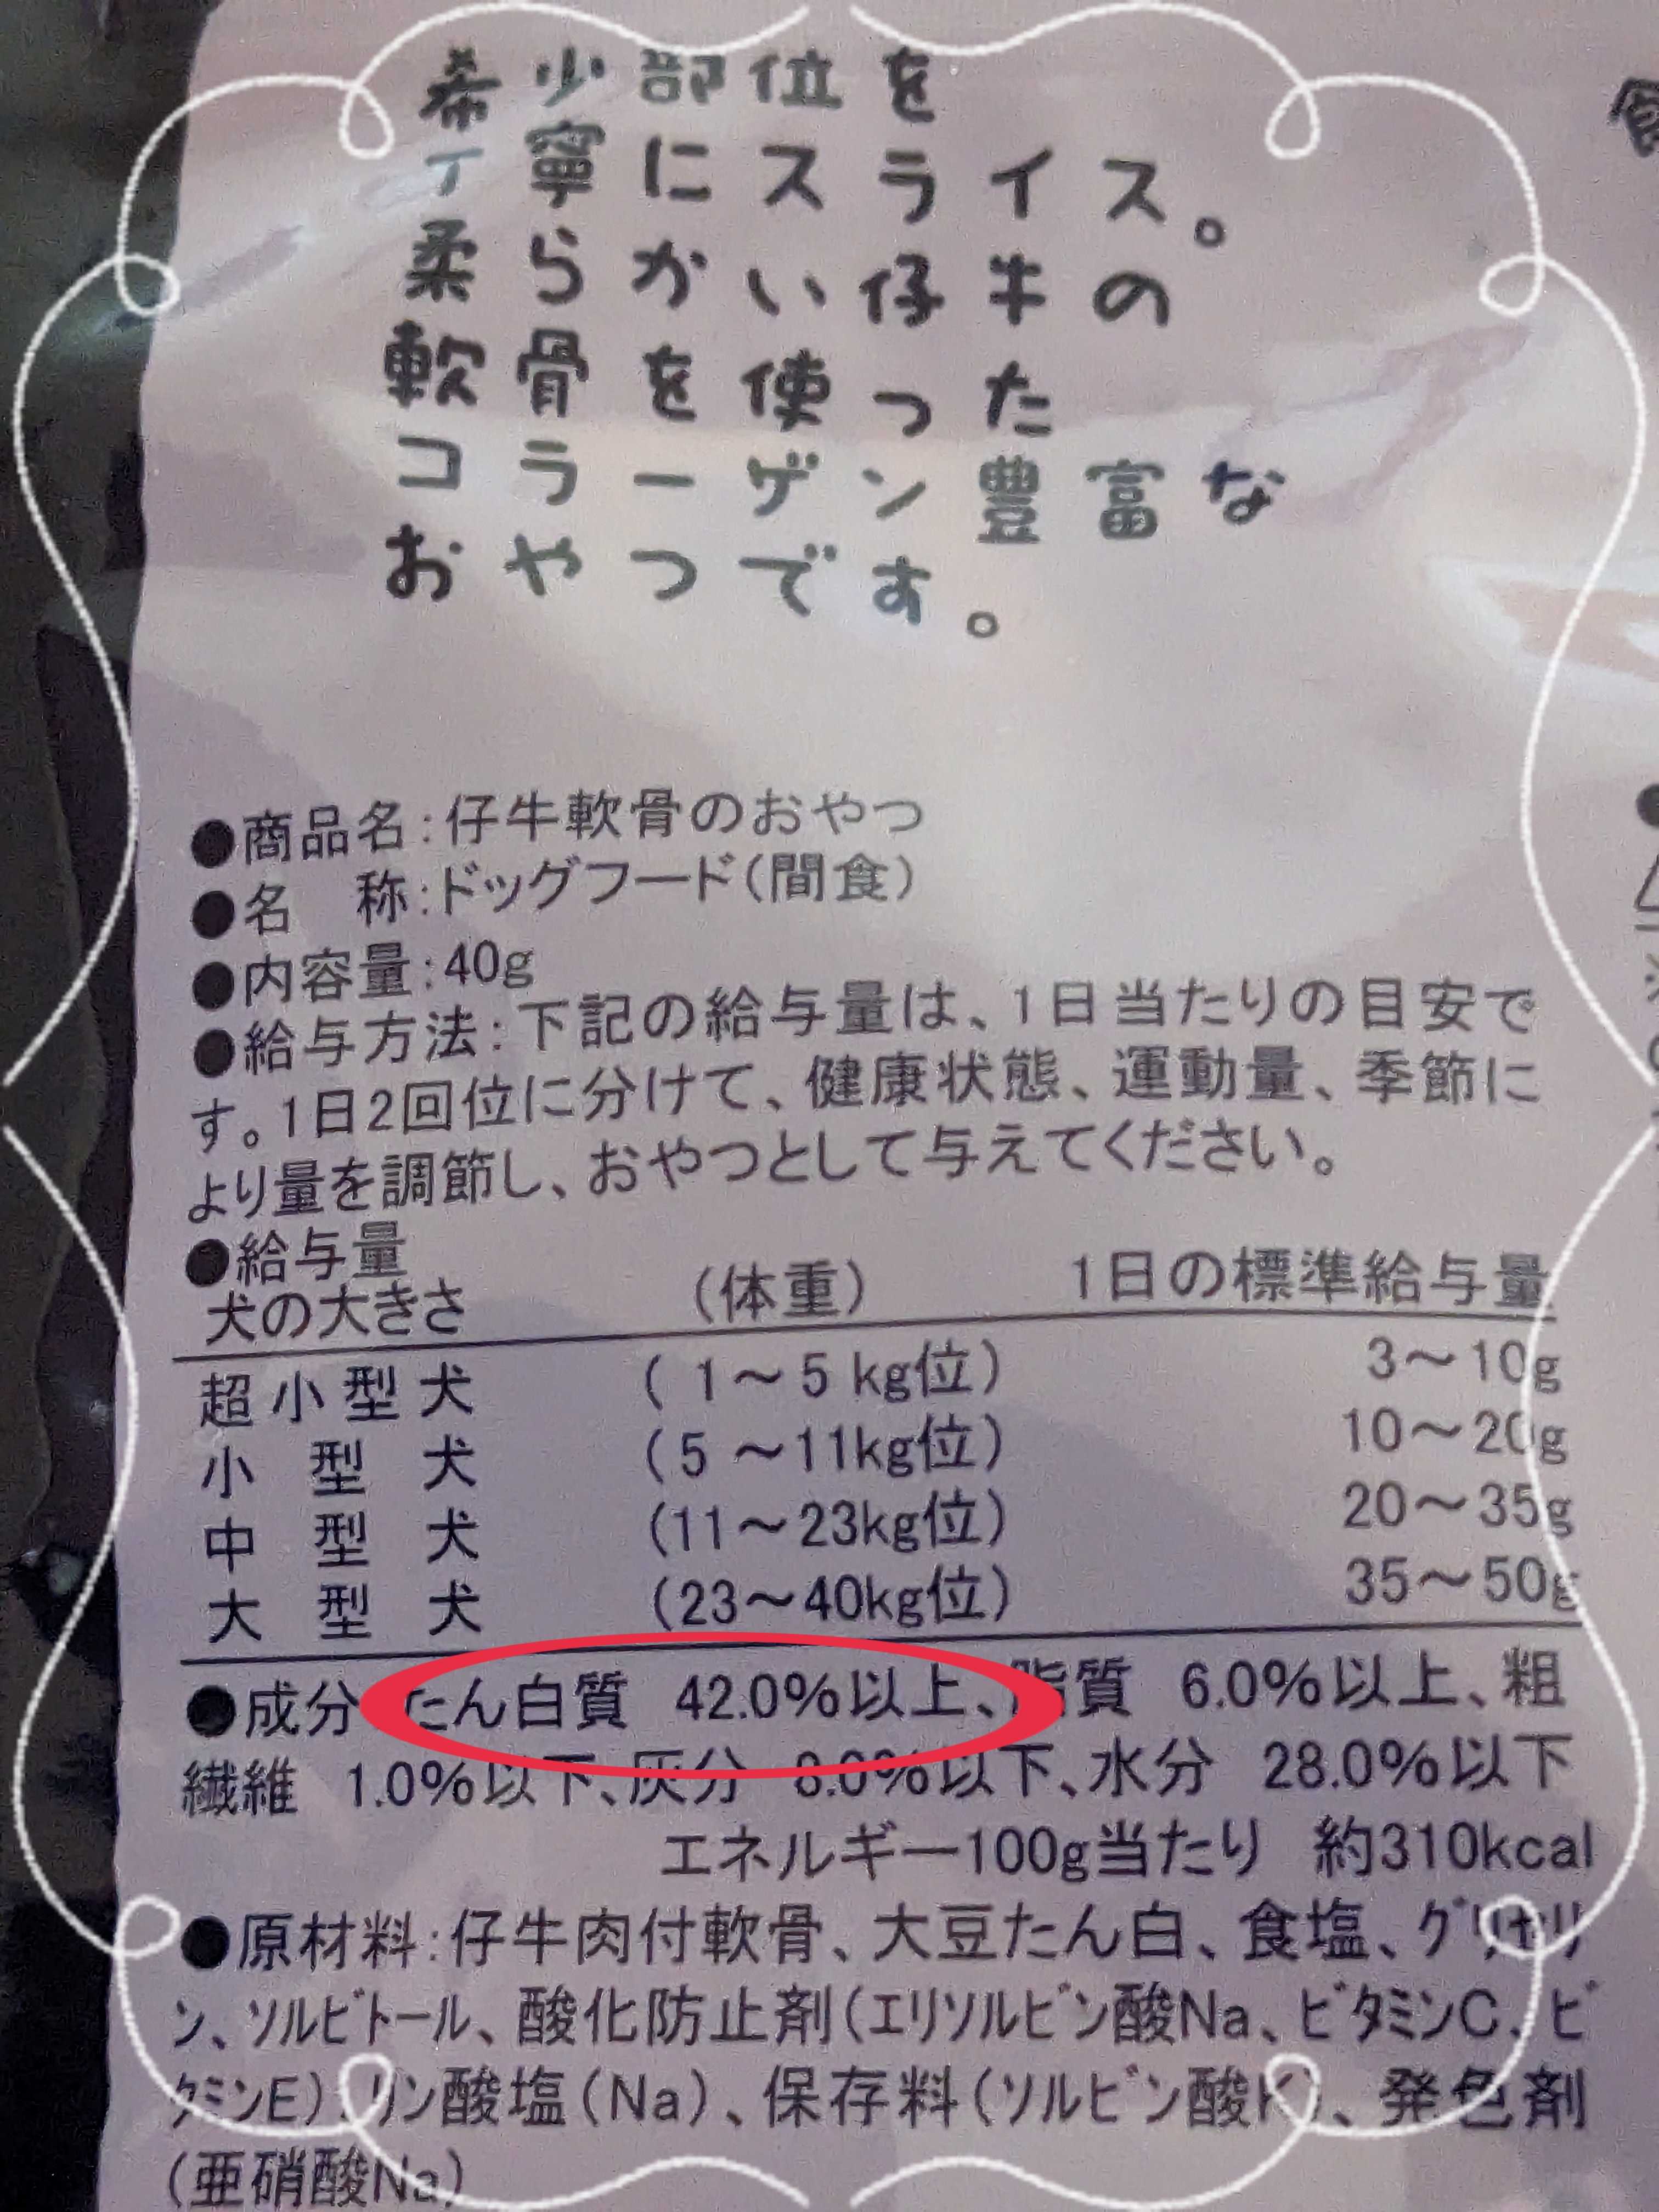 希少部位を
丁寧にスライス。
柔らかい仔牛の
軟骨を使った
コラーゲン豊富な
おやつです。
●商品名:仔牛軟骨のおやつ
●名　称:ドッグフード(間食)
●内容量:40g
●給与方法:下記の給与量は、1日当たりの目安で
す。1日2回位に分けて、健康状態、運動量、季節に
より量を調節し、おやつとして与えてください。
●給与量
犬の大きさ　(体重)　1日の標準給与量
超小型犬　(1～5kg位)　3～10g
小型犬　(5～11kg位)　10～20g
中型犬　(11～23kg位)　20～35g
大型犬　(23～40kg位)　35～50g
●成分 たん白質　42.0%以上、脂質　6.0%以上、粗
繊維　1.0%以下、灰分　8.0%以下、水分　28.0%以下
エネルギー100g当たり　約310kcal
●原材料:仔牛肉付軟骨、大豆たん白、食塩、ｸﾞﾘｾﾘ
ﾝ、ｿﾙﾋﾞﾄｰﾙ、酸化防止剤(ｴﾘｿﾙﾋﾞﾝ酸Na、ﾋﾞﾀﾐﾝC、ﾋﾞ
ﾀﾐﾝE)、ﾘﾝ酸塩(Na)、保存料(ｿﾙﾋﾞﾝ酸K)、発色剤
(亜硝酸Na)